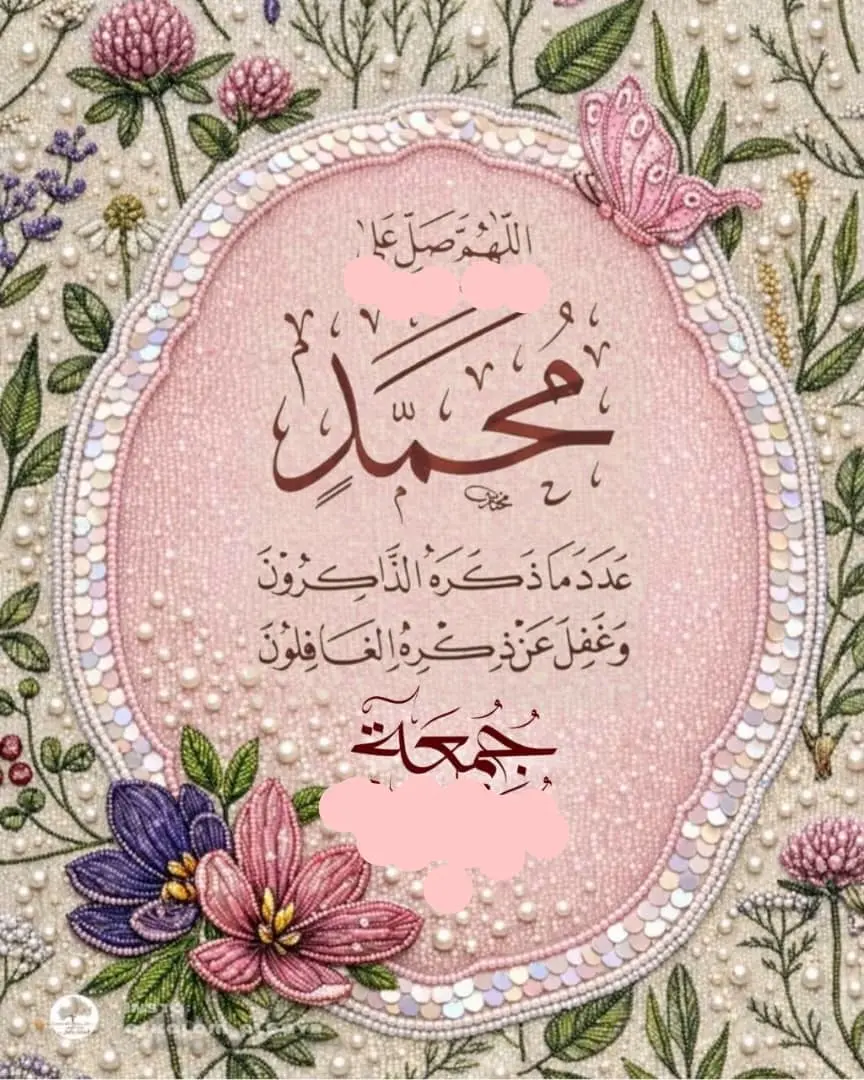 اللَّهُمَّ صَلِّ عَلى
مُحَمَّدٍ
عَدَدَ مَا ذَكَرَهُ الذَّاكِرُوْنَ
وَغَفِلَ عَنْ ذِكْرِهِ الغَافِلُوْنَ
جُمُعَة